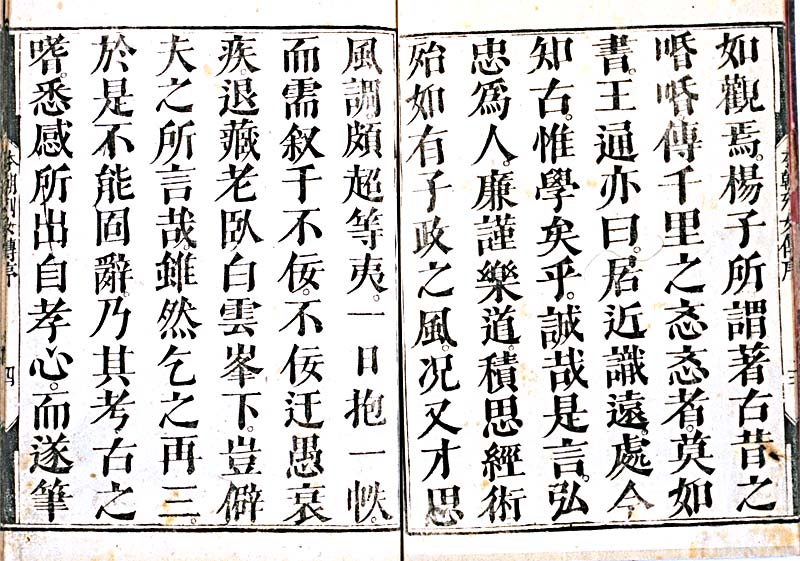 如觀焉。楊子所謂著古昔之
㖧㖧傳千里之忞忞者。莫如
書。王通亦曰。居近識遠。處今
知古。惟學矣乎。誠哉是言。弘
忠爲人。廉謹樂道。積思經術
殆如有子政之風。况又才思
風調。頗超等夷。一日抱一帙。
而需叙于不佞。不佞迂愚衰
疾。退藏老臥白雲峯下。豈僻
夫之所言哉。雖然乞之再三。
於是不能固辭。乃其考古之
嗜。悉感所出自孝心。而遂筆
本朝列女傳序
四
本朝列女傳序
三